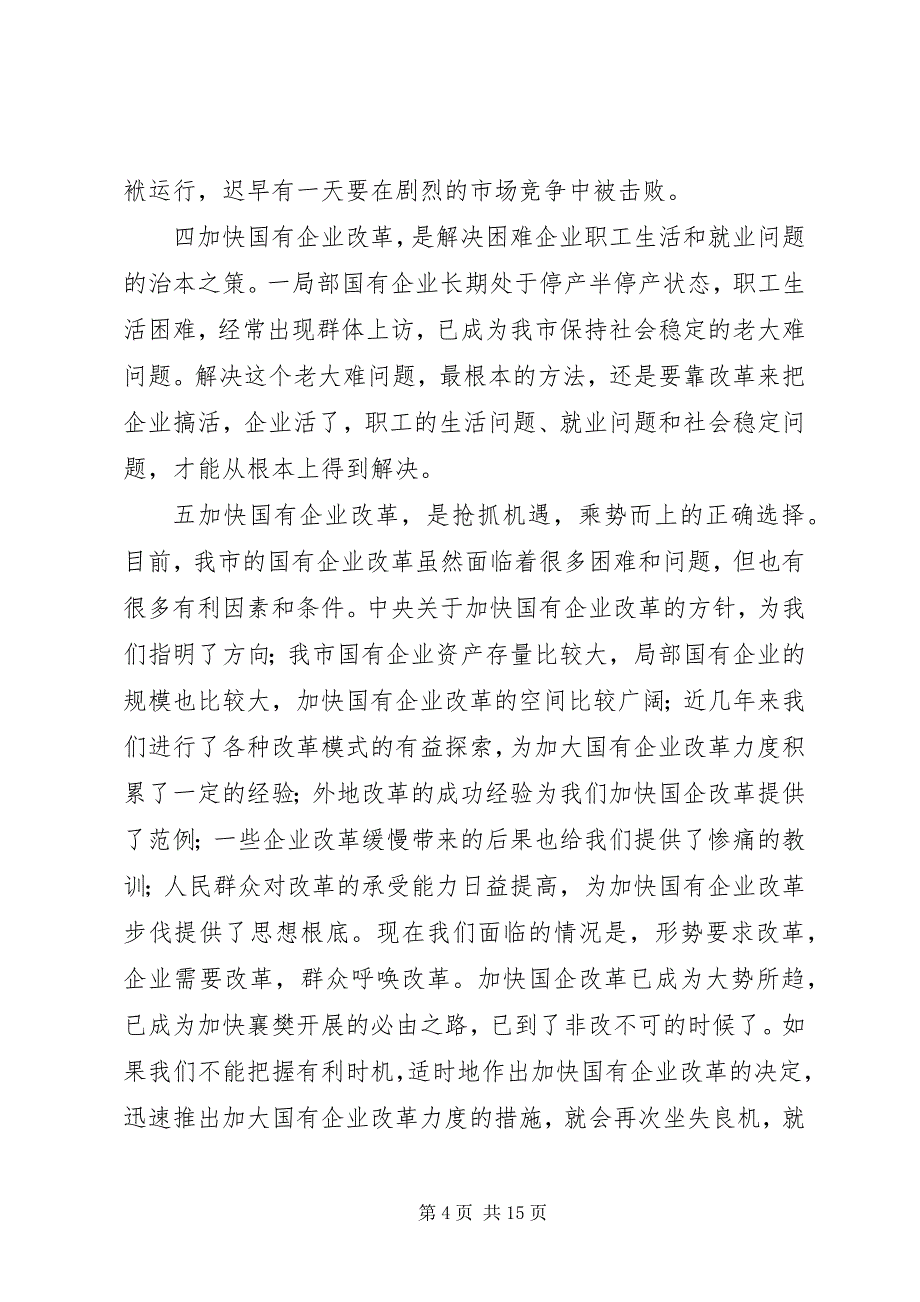 袱运行，迟早有一天要在剧烈的市场竞争中被击败。
四加快国有企业改革，是解决困难企业职工生活和就业问题
的治本之策。一局部国有企业长期处于停产半停产状态，职工生
活困难，经常出现群体上访，已成为我市保持社会稳定的老大难
问题。解决这个老大难问题，最根本的方法，还是要靠改革来把
企业搞活，企业活了，职工的生活问题、就业问题和社会稳定问
题，才能从根本上得到解决。
五加快国有企业改革，是抢抓机遇，乘势而上的正确选择。
目前，我市的国有企业改革虽然面临着很多困难和问题，但也有
很多有利因素和条件。中央关于加快国有企业改革的方针，为我
们指明了方向；我市国有企业资产存量比较大，局部国有企业的
规模也比较大，加快国有企业改革的空间比较广阔；近几年来我
们进行了各种改革模式的有益探索，为加大国有企业改革力度积
累了一定的经验；外地改革的成功经验为我们加快国企改革提供
了范例；一些企业改革缓慢带来的后果也给我们提供了惨痛的教
训；人民群众对改革的承受能力日益提高，为加快国有企业改革
步伐提供了思想根底。现在我们面临的情况是，形势要求改革，
企业需要改革，群众呼唤改革。加快国企改革已成为大势所趋，
已成为加快襄樊开展的必由之路，已到了非改不可的时候了。如
果我们不能把握有利时机，适时地作出加快国有企业改革的决定，
迅速推出加大国有企业改革力度的措施，就会再次坐失良机，就
第 4 页 共 15 页